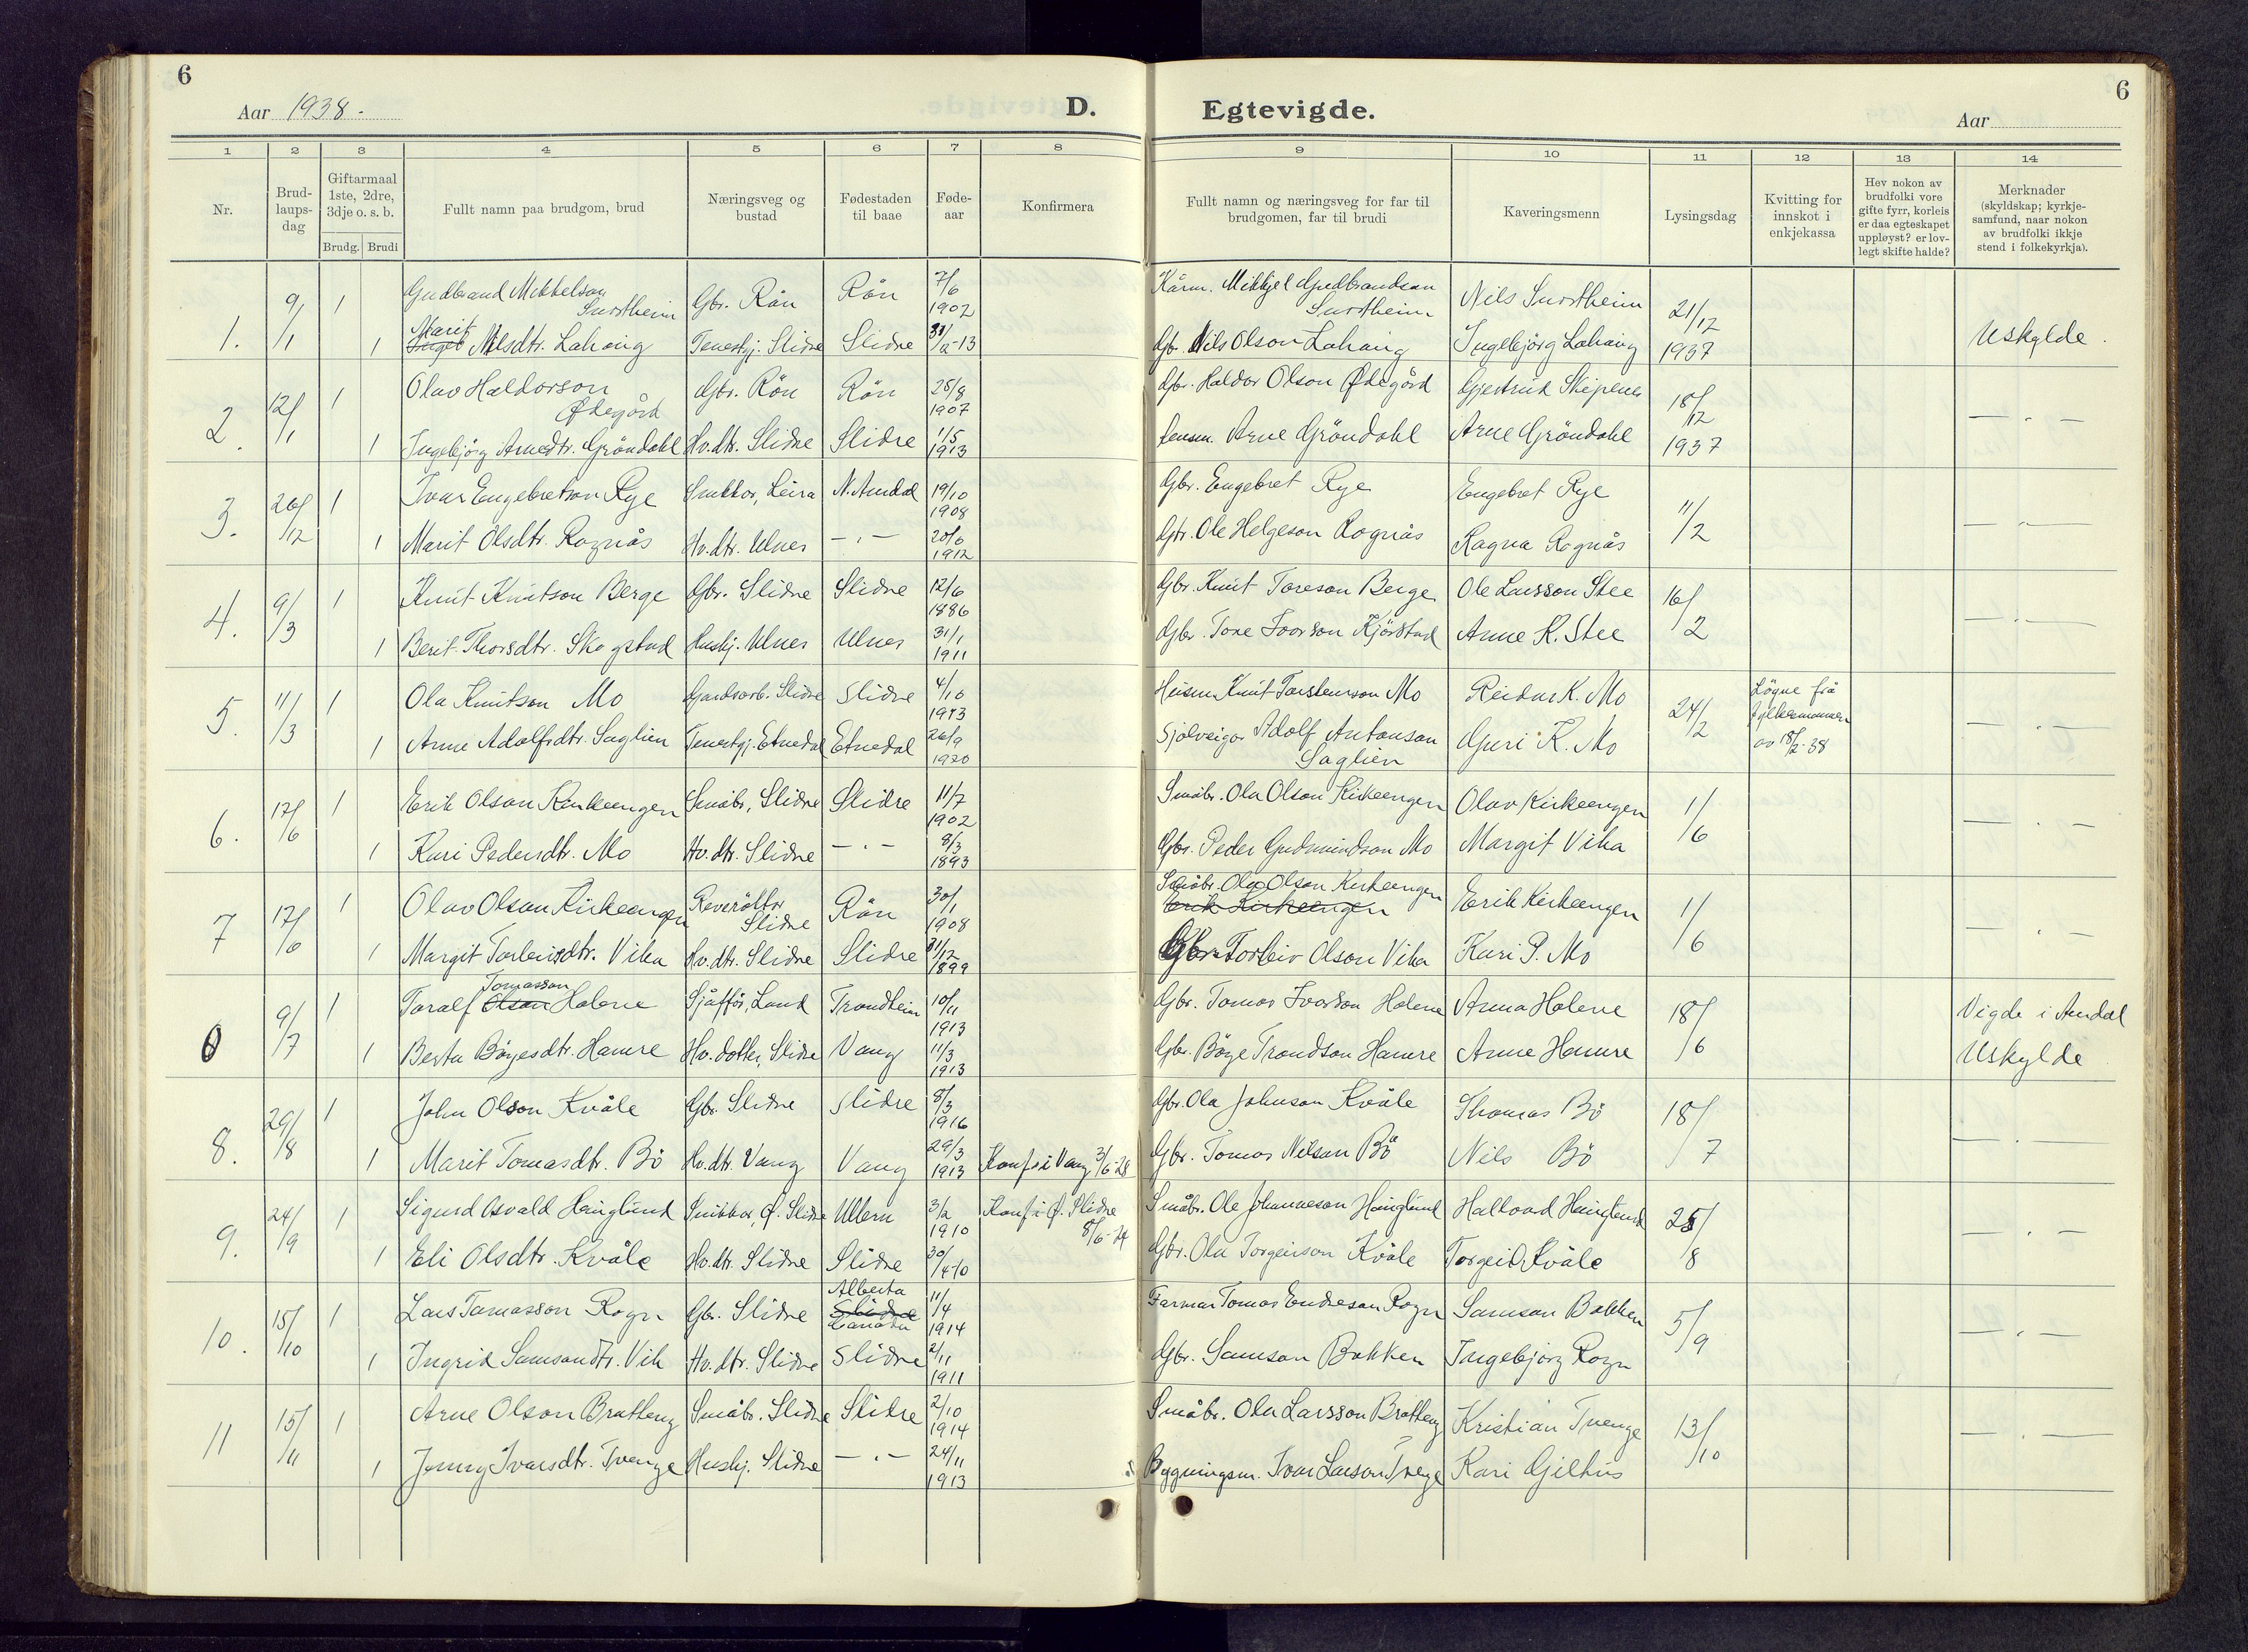 6
Aar 1938.
D.
1 2 3 4 5 6 7 8
Nr.
Brud-
laups-
dag
Giftarmaal
1ste, 2dre,
3dje o. s. b.
Brudg. Brudi
Fullt namn paa brudgom, brud
Næringsveg og
bustad
Fødestaden
til baae
Føde-
aar
Konfirmera
1. 9/1 1 Gudbrand Mikkelson
Surstheim Gbr. Røn Røn 7/6
1902
Marit
1 Nilsdtr. Lahaug Tenestgj. Slidre Slidre 31/12-13
2. 12/1 1 Olav Haldorson
Ødegård Gbr. Røn Røn 25/8
1907
1 Ingebjørg Arnedtr. Grøndahl Hv.dtr. Slidre Slidre 1/5
1913
3. 26/12 1 Ivar Engebretson Rye Snikkar, Leira N. Aurdal 19/10
1908
1 Marit Olsdtr. Rognås Hv.dtr. Ulnes — " — 20/6
1912
4. 9/3 1 Knut Knutson Berge Gbr. Slidre Slidre 12/6
1886
1 Berit Thorsdtr. Skogstad Hushj. Ulnes Ulnes 31/1
1911
5. 11/3 1 Ola Knutson Mo Gardsarb. Slidre Slidre 4/10
1913
1 Anne Adolfsdtr. Saglien Tenestgj. Etnedal Etnedal 26/9
1920
6. 17/6 1 Erik Olson Kirkeengen Småbr, Slidre Slidre 11/7
1902
1 Kari Pedersdtr. Mo Hv.dtr. Slidre — " — 8/3
1893
7 17/6 1 Olav Olson Kirkeengen Reverøktar
Slidre Røn 30/1
1908
1 Margit Torleivsdtr. Vika Hv.dtr. Slidre Slidre 31/12
1899
Tomasson
0 9/7 1 Toralf Olson Holene Sjåffør, Land Trondheim 10/11
1913
1 Berta Bøyesdtr. Hamre Hv. dotter, Slidre Vang 11/3
1913
8. 29/8 1 John Olson Kvåle Gbr. Slidre Slidre 8/3
1916
1 Marit Tomasdtr. Bö Hv.dtr. Vang Vang 29/3
1913 Konf. i Vang 3/6-28
9. 24/9 1 Sigurd Osvald Hauglund Snikkar, Ø. Slidre Ullern 3/2
1910 Konf. i Ø. Slidre
8/6-24
1 Eli Olsdtr. Kvåle Hv.dtr. Slidre Slidre 30/4-10
10. 15/10 1 Lars Tomasson Rogn Gbr. Slidre Alberta
Slidre
Canada 11/4
1914
1 Ingrid Samsondtr. Vik Hv.dtr. Slidre Slidre 2/11
1911
11 15/11 1 Arne Olson Bratteng Småbr. Slidre Slidre 2/10
1914
1 Jenny Ivarsdtr. Tvenge Hushj. Slidre — " — 24/11
1913
6
Egtevigde.
Aar
9 10 11 12 13 14
Fullt namn og næringsveg for far til
brudgomen, far til brudi
Kaveringsmenn
Lysingsdag
Kvitting for
innskot i
enkjekassa
Hev nokon av
brudfolki vore
gifte fyrr, korleis
er daa egteskapet
uppløyst? er lov-
legt skifte halde?
Merknader
(skyldskap; kyrkje-
samfund, naar nokon
av brudfolki ikkje
stend i folkekyrkja).
Kårm. Mikkjel Gudbrandson
Surstheim Nils Surstheim 21/12
1937
Gbr. Nils Olson Lahaug Ingebjørg Lahaug Uskylde.
Gbr. Haldor Olson Ødegård Gjertrud Skipenes 18/12
1937
Lensm. Arne Grøndahl Arne Grøndahl — " —
Gbr. Engebret Rye Engebret Rye 11/2
Gbr. Ole Helgeson Rognås Ragna Rognås — " —
Gbr. Knut Toreson Berge Ole Larsson Stee 16/2
Gbr. Tore Ivarson Kjørstad Anne K. Stee — " —
Husm. Knut Torstenson Mo Reidar K. Mo 24/2 Løyve frå
fylkesmannen
av 18/2-38
Sjølveigar Adolf Antonson
Saglien Guri K. Mo — " —
Småbr. Ola Olson Kirkeengen Olav Kirkeengen 1/6
Gbr. Peder Gudmundson Mo Margit Vika — " —
Småbr. Ola Olson Kirkeengen
Erik Kirkeengen Erik Kirkeengen 1/6
Gbr. Torleiv Olson Vika Kari P. Mo — " —
Gbr. Tomas Ivarson Holene Anna Holene 18/6 Vigde i Aurdal
Gbr. Bøye Trondson Hamre Anne Hamre Uskylde
Gbr. Ola Johnson Kvåle Thomas Bö 18/7
Gbr. Tomas Nilson Bö Nils Bö — " —
Småbr. Ole Johanneson Hauglund Hallvard Hauglund 25/8
Gbr. Ola Torgeirson Kvåle Torgeir Kvåle — " —
Farmar Tomas Endreson Rogn Samson Bakken 5/9
Gbr. Samson Bakken Ingebjørg Rogn — " —
Småbr. Ola Larsson Bratteng Kristian Tvenge 13/10
Bygningsm. Ivar Larson Tvenge Kari Gilhus — " —